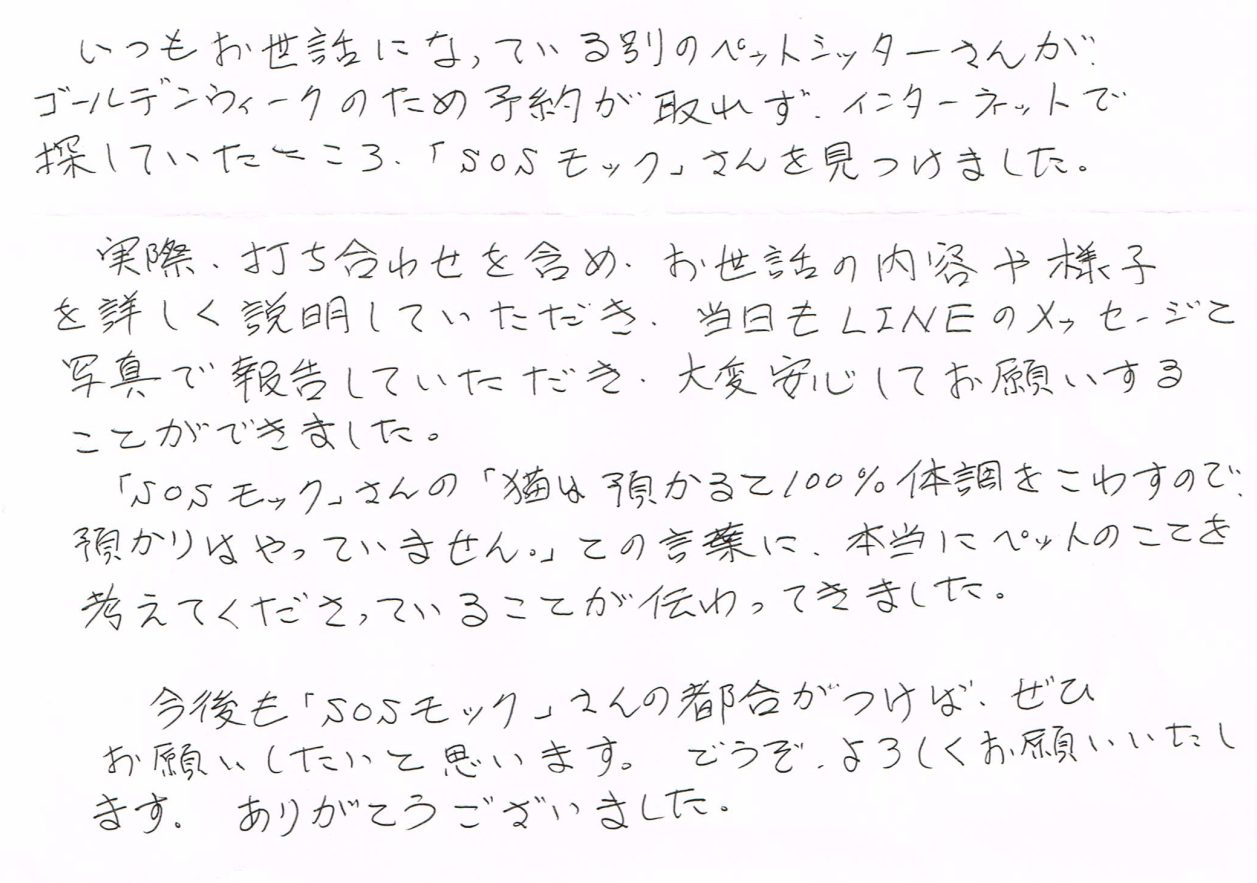 いつもお世話になっている別のペットシッターさんが、
ゴールデンウィークのため予約が取れず、インターネットで
探していたところ、「SOSモック」さんを見つけました。
実際、打ち合わせを含め、お世話の内容や様子
を詳しく説明していただき、当日もLINEのメッセージと
写真で報告していただき、大変安心してお願いする
ことができました。
「SOSモック」さんの「猫は預かると100%体調をこわすので、
預かりはやっていません。」との言葉に、本当にペットのことを
考えてくださっていることが伝わってきました。
今後も「SOSモック」さんの都合がつけば、ぜひ
お願いしたいと思います。どうぞ、よろしくお願いいたし
ます。ありがとうございました。